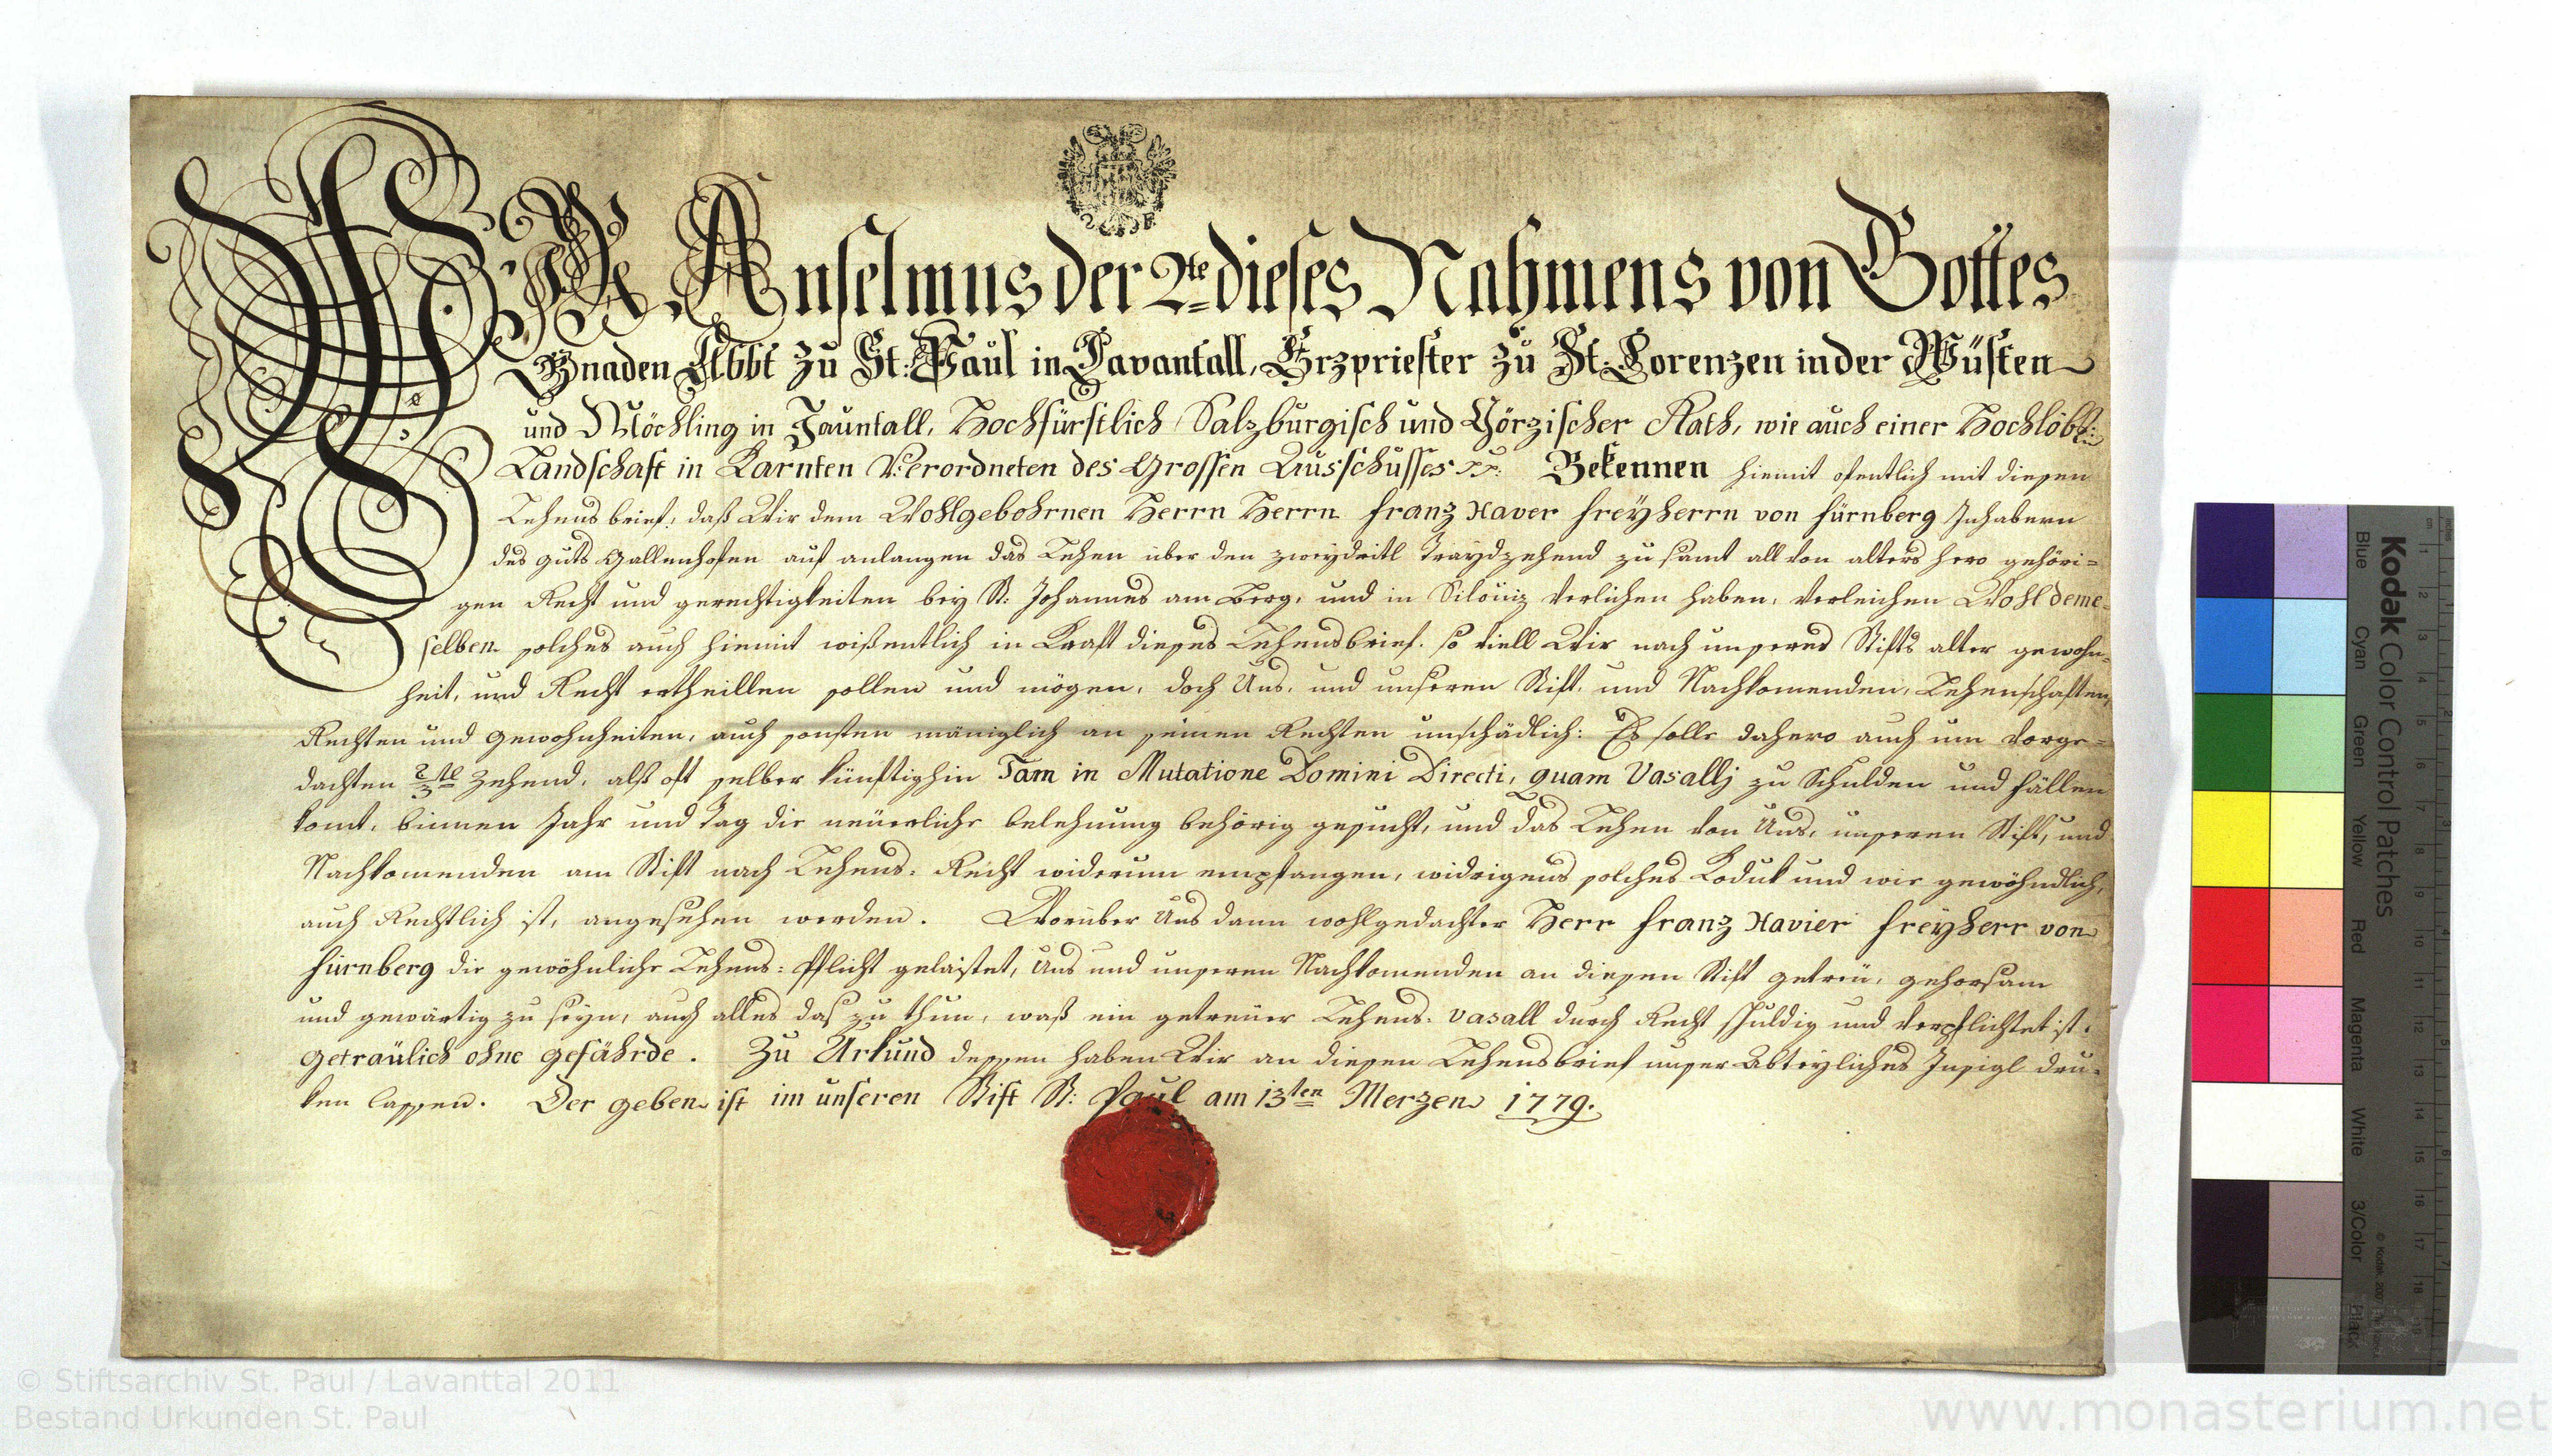 WIR Anselmus der 2te dieses Nahmens von Gottes
Gnaden Abbt zu St: Paul in Lavantall, Erzpriester zu St: Lorenzen in der Wüsten
und Möchling in Jauntall, Hochfürstlich Salzburgisch und Görzischer Rath, wie auch einer Hochlöbl:
Landschaft in Karnten Verordneten des Grossen Ausschusses Bekennen hiemit ofentlich mit diesen
Lehensbrief, daß Wir dem Wohlgebohrnen Herrn Herrn Franz Xaver Freyherrn von Fürnberg Inhabern
des guts Gallenhofen auf anlangen das Lehen über den zweydritl Traydzehend zu samt all von alters hero gehöri=
gen Recht und gerechtigkeiten bey St: Johannes am Berg, und in Silöuiz verlichen haben, verleichen Wohl deme=
selben solches auch hiemit wißentlich in Kraft dieses Lehensbrief. so viell Wir nach unseres Stifts alter gewohn=
heit, und Recht ertheillen sollen und mögen, doch Uns, und unseren Stift, und Nachkomenden, Lehenschaften,
Rechten und gewohnheiten, auch sonsten mäniglich an seinen Rechten unschädlich: Es solle dahero auch um vorge=
dachten 2/3tl Zehend, alß oft selber künftighin Tam in Mutatione Domini Directi, quam Vasallj zu Schulden und fällen
komt, binnen Jahr und Tag die neüerliche belehnung behörig gesucht, und das Lehen von Uns, unseren Stift, und
Nachkomenden am Stift nach Lehens=Recht widerum empfangen, widrigens solches Caduk und wie gewöhndlich,
auch Rechtlich ist, angesehen werden. Worüber Uns dann wohlgedachter Herr Franz Xavieri Freyherr von
Fürnberg die gewöhnliche Lehens=Pflicht gelaistet, Uns und unseren Nachkomenden an diesen Stift getreü, gehorsam
und gewärtig zu seyn, auch alles das zu thun, waß ein getreüer Lehens=vasall durch Recht schuldig und verpflichtet ist.
getraülich ohne gefährde. Zu Urkund dessen haben Wir an diesen Lehensbrief unser Abteyliches Insigl dru=
ken lassen. Der geben ist im unseren Stift St: Paul am 13ten Merzen 1779.
Kodak Color Control Patches
Blue Cyan Green Yellow Red Magenta White 3/Color Black
© Stiftsarchiv St. Paul / Lavanttal 2011
Bestand Urkunden St. Paul
www.monasterium.net